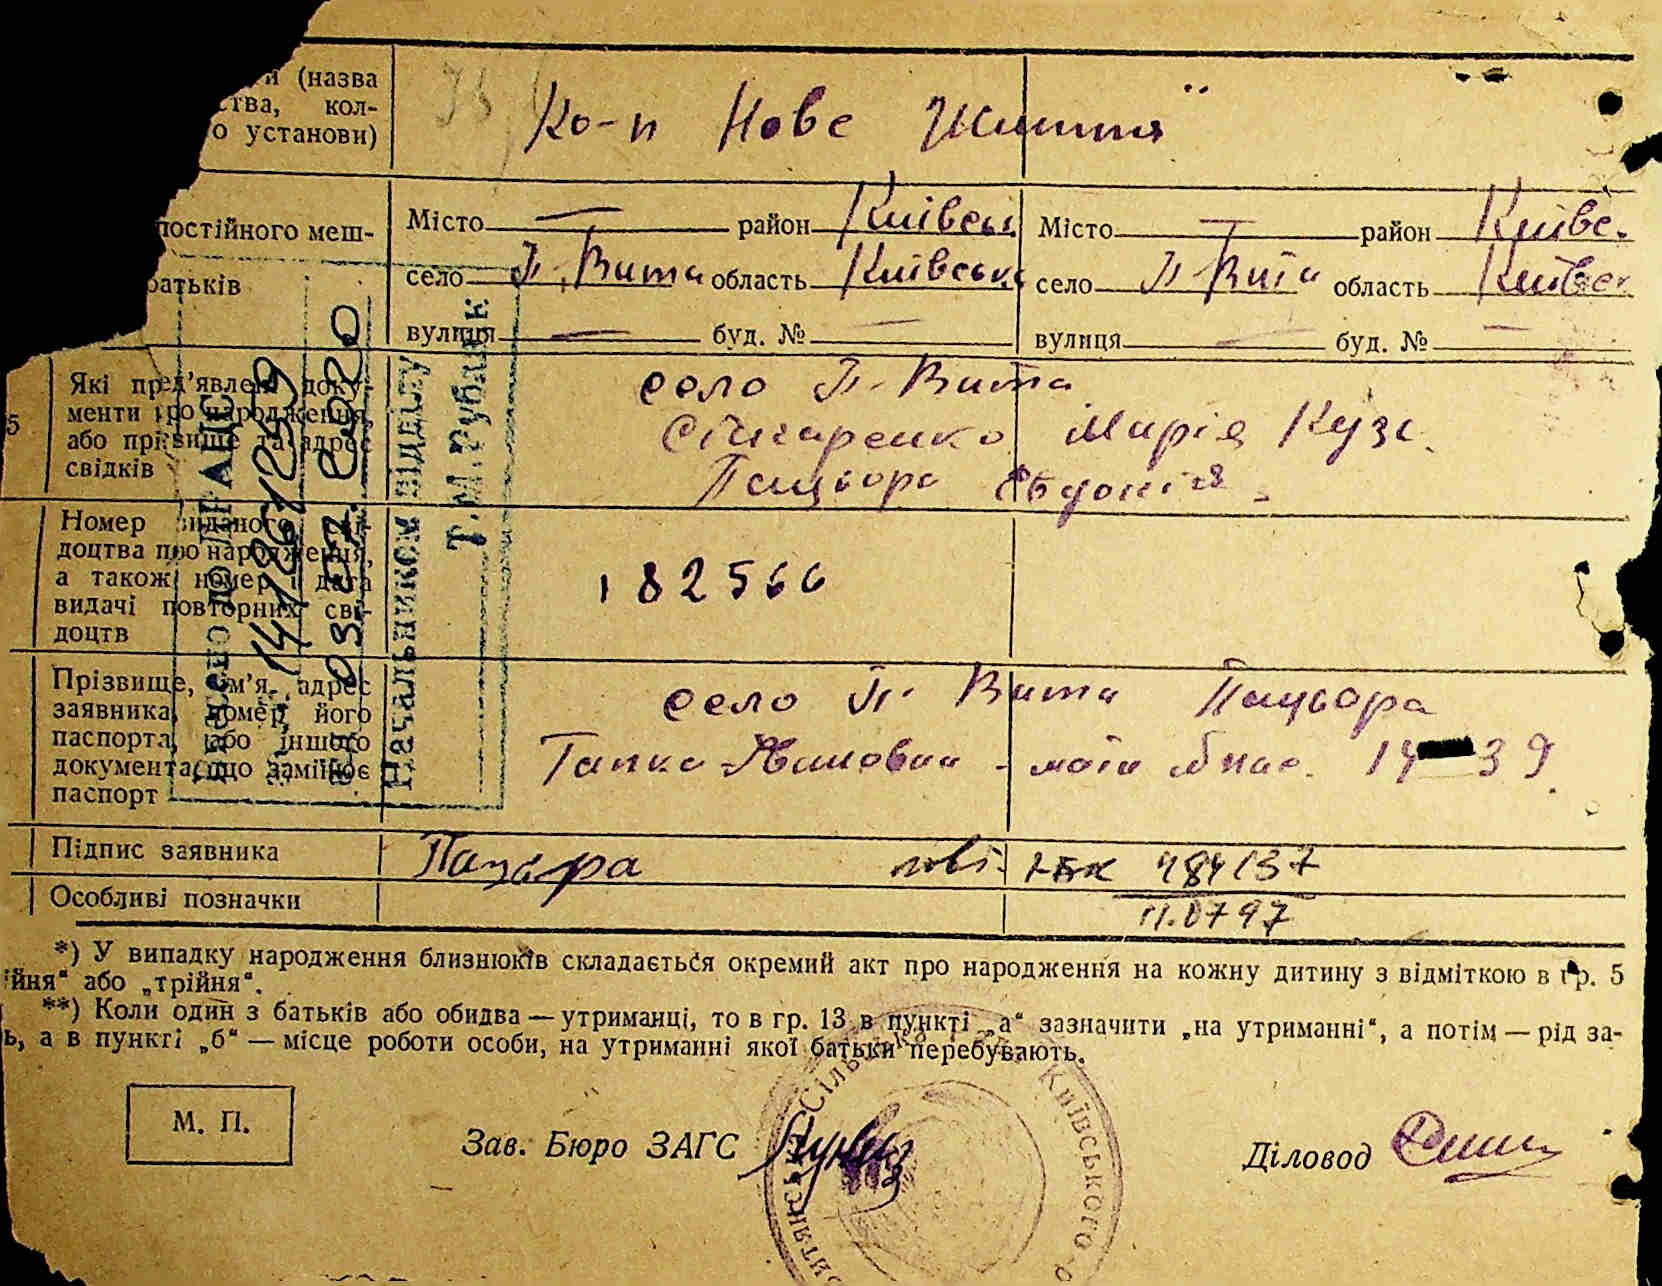 и (назва
ства, кол-
о установи)
Ко-п Нове Життя
постійного меш-
батьків
Місто — район Київськ
село П. Вита область Київська
вулиця — буд. №
Місто — район Київс.
село П-Вита область Київськ
вулиця буд. № —
5
Які пред'явлені доку-
менти про народження
або прізвище та адрес
свідків
село П-Вита
Марія Куз.
Пацьора Євдокія
Номер виданого сві-
доцтва про народження,
а також номер і дата
видачі повторних сві-
доцтв
182566
Прізвище, ім'я, адрес
заявника, номер його
паспорта, або іншого
документа, що замінює
паспорт
село П. Вита Пацьора
39
Підпис заявника
Пацьора
484137
Особливі позначки
11.07 97
Начальником відділу
Т.М.Рубаник
*) У випадку народження близнюків складається окремий акт про народження на кожну дитину з відміткою в гр. 5
йня" або „трійня".
**) Коли один з батьків або обидва — утриманці, то в гр. 13 в пункті „а" зазначити „на утриманні", а потім — рід за-
ь, а в пункті „б" — місце роботи особи, на утриманні якої батьки перебувають.
М. П.
Зав. Бюро ЗАГС
Діловод
Київського